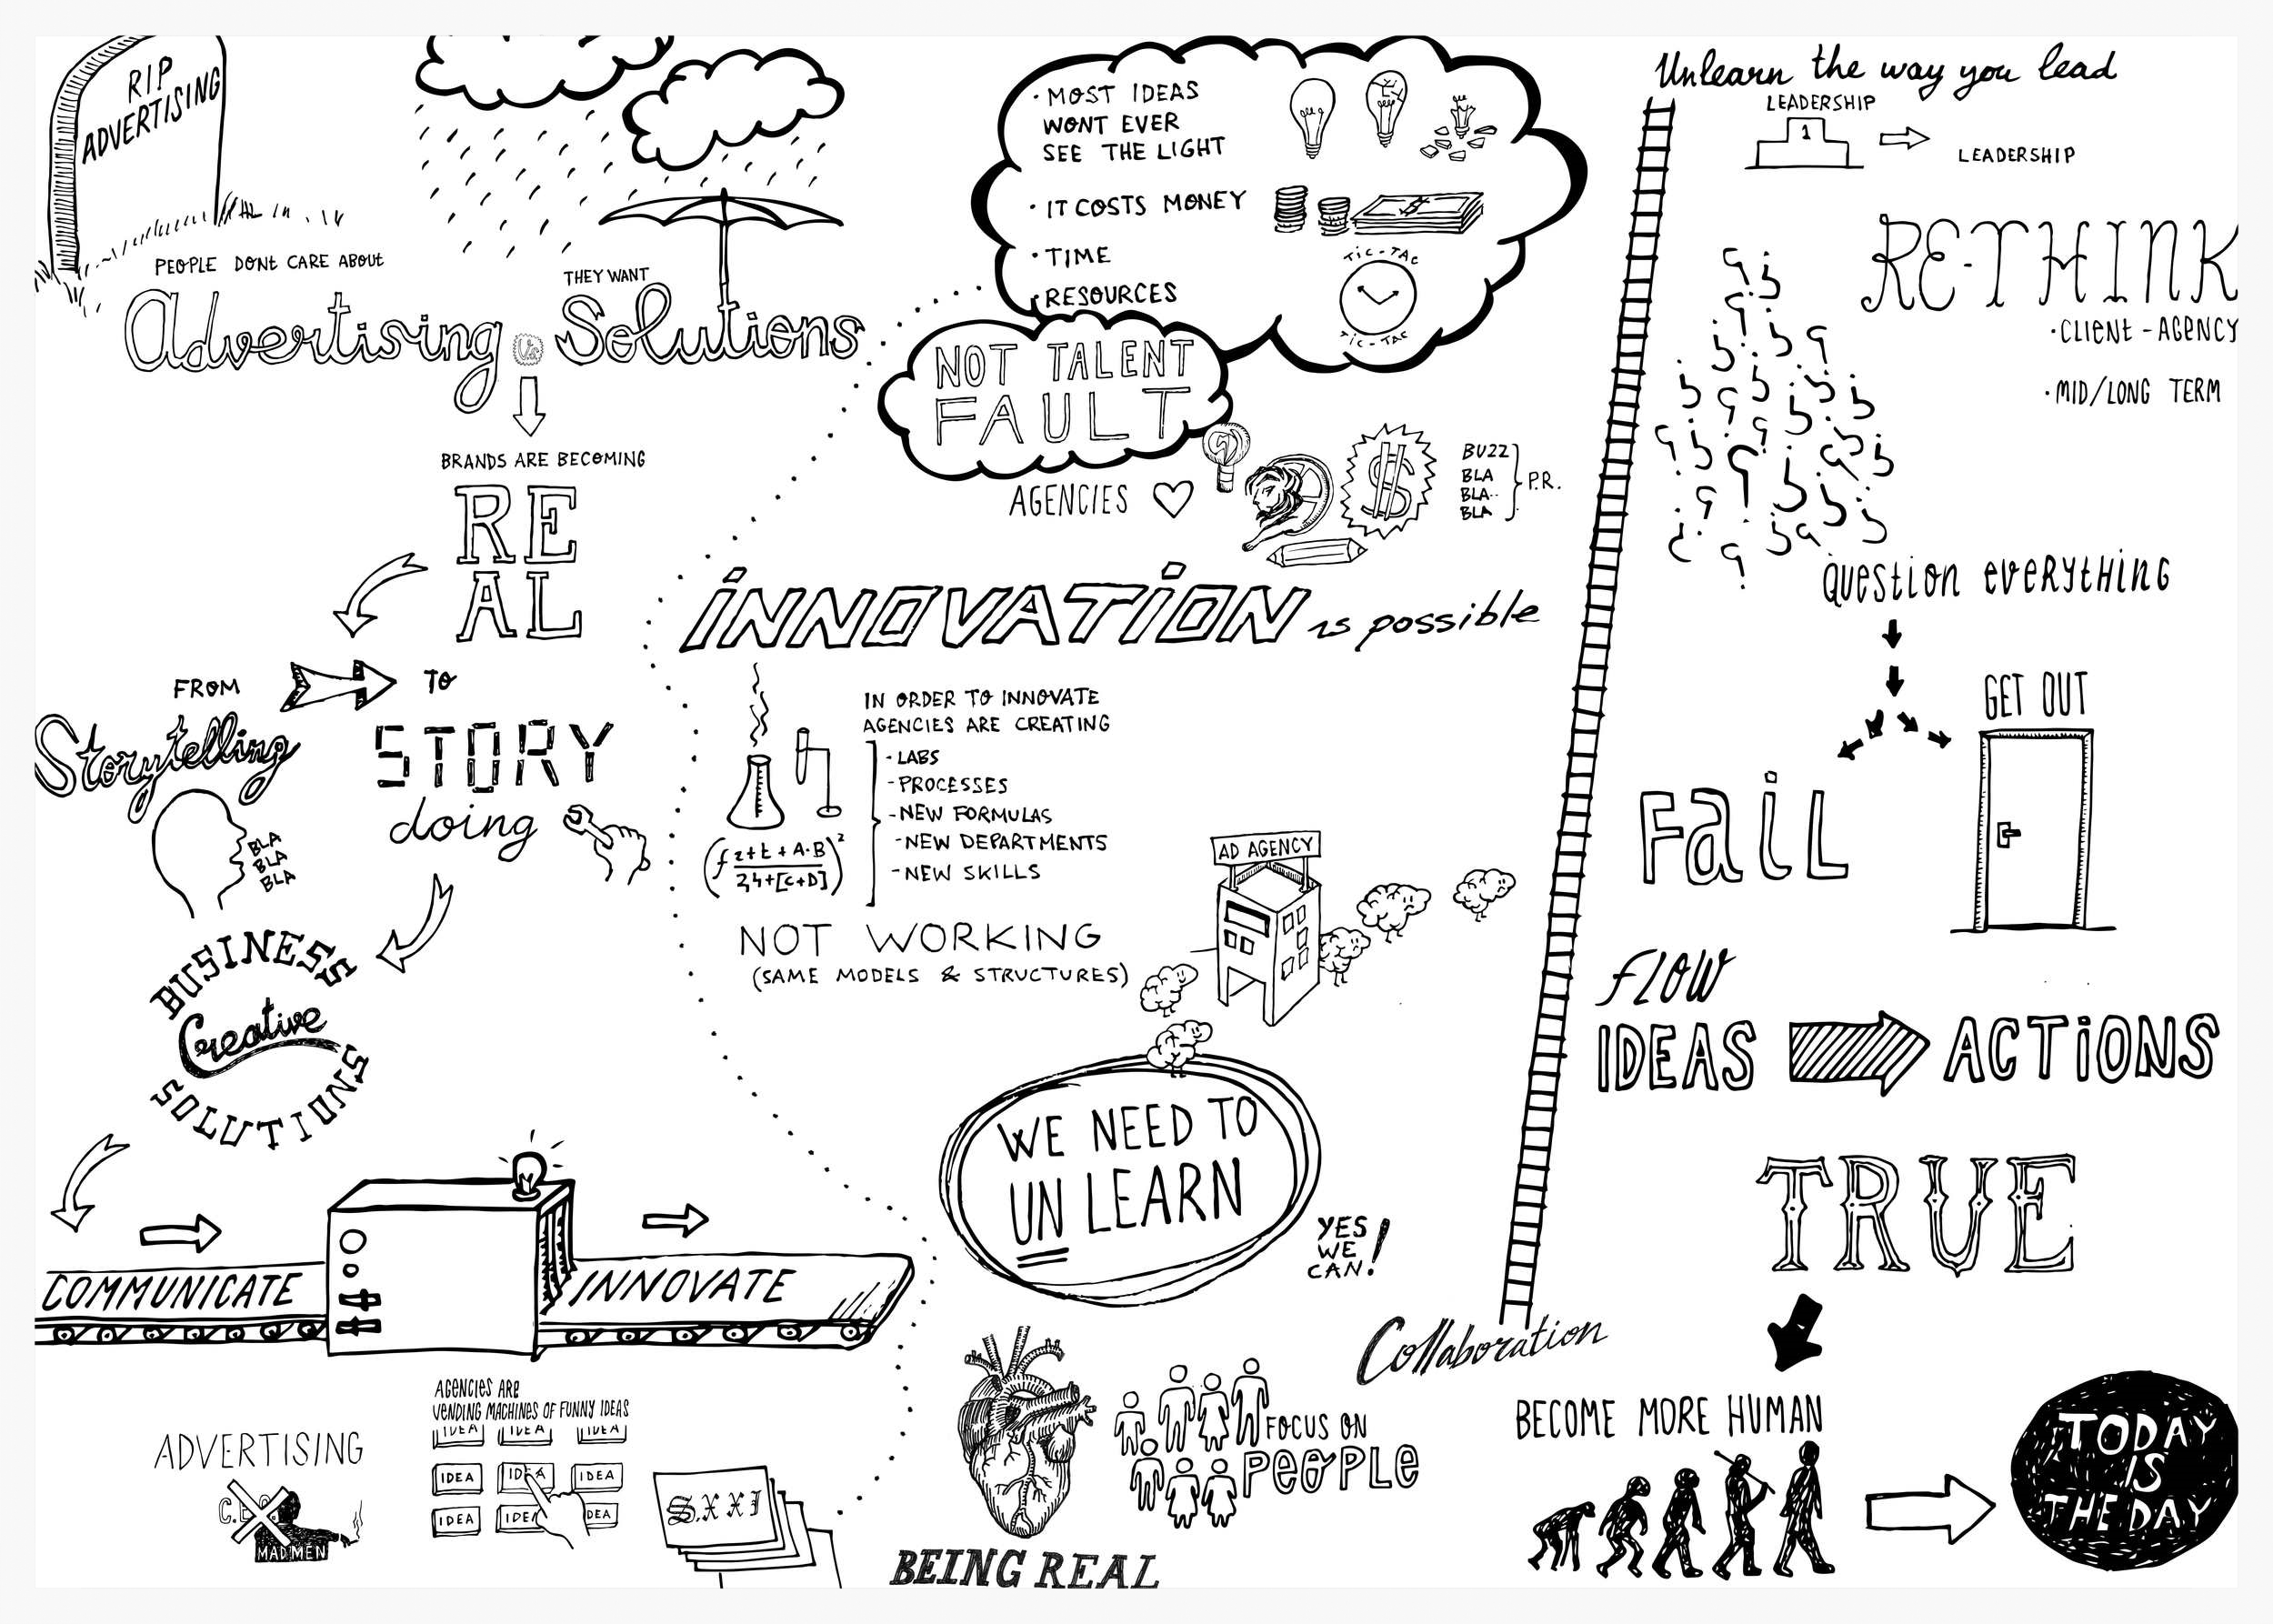 RIP
ADVERTISING
PEOPLE DONT CARE ABOUT
Advertising
Vs
THEY WANT
Solutions
BRANDS ARE BECOMING
RE
AL
FROM
Storytelling
TO
STORY
doing
BLA
BLA
BLA
BUSINESS
Creative
SOLUTIONS
COMMUNICATE
INNOVATE
ADVERTISING
MAD MEN
AGENCIES ARE
VENDING MACHINES OF FUNNY IDEAS
IDEA IDEA IDEA
IDEA IDEA IDEA
IDEA IDEA DEA
S.XXI
· MOST IDEAS
WONT EVER
SEE THE LIGHT
· IT COSTS MONEY
· TIME
· RESOURCES
TIC-TAC
TIC-TAC
NOT TALENT
FAULT
AGENCIES
$
BUZZ
BLA
BLA..
BLA
P.R.
INNOVATION is possible
IN ORDER TO INNOVATE
AGENCIES ARE CREATING
- LABS
- PROCESSES
- NEW FORMULAS
- NEW DEPARTMENTS
- NEW SKILLS
NOT WORKING
(SAME MODELS & STRUCTURES)
AD AGENCY
WE NEED TO
UN LEARN
YES
WE
CAN!
Collaboration
FOCUS ON
PEOPLE
BEING REAL
Unlearn the way you lead
LEADERSHIP
1
LEADERSHIP
RE-THINK
· CLIENT - AGENCY
· MID/LONG TERM
QUESTION EVERYTHING
GET OUT
FAIL
FLOW
IDEAS
ACTIONS
TRUE
BECOME MORE HUMAN
TODAY
IS
THE DAY